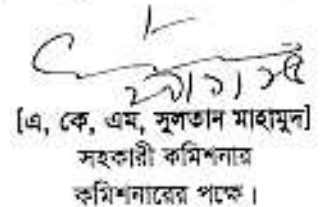 [এ, কে, এম, সুলতান মাহামুদ]
সহকারী কমিশনার
কমিশনারের পক্ষে।